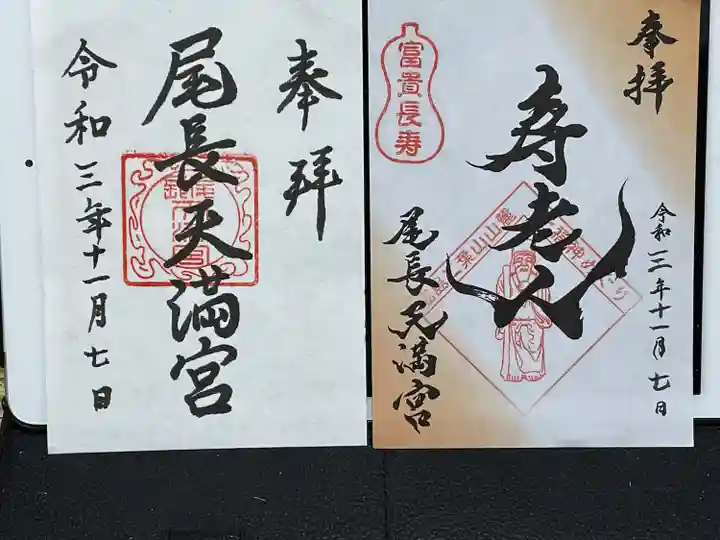 奉拝
尾長天満宮
令和三年十一月七日
奉拝
寿老人
富貴長寿
令和三年十一月七日
尾長天満宮
葉山山麓
福神めぐり